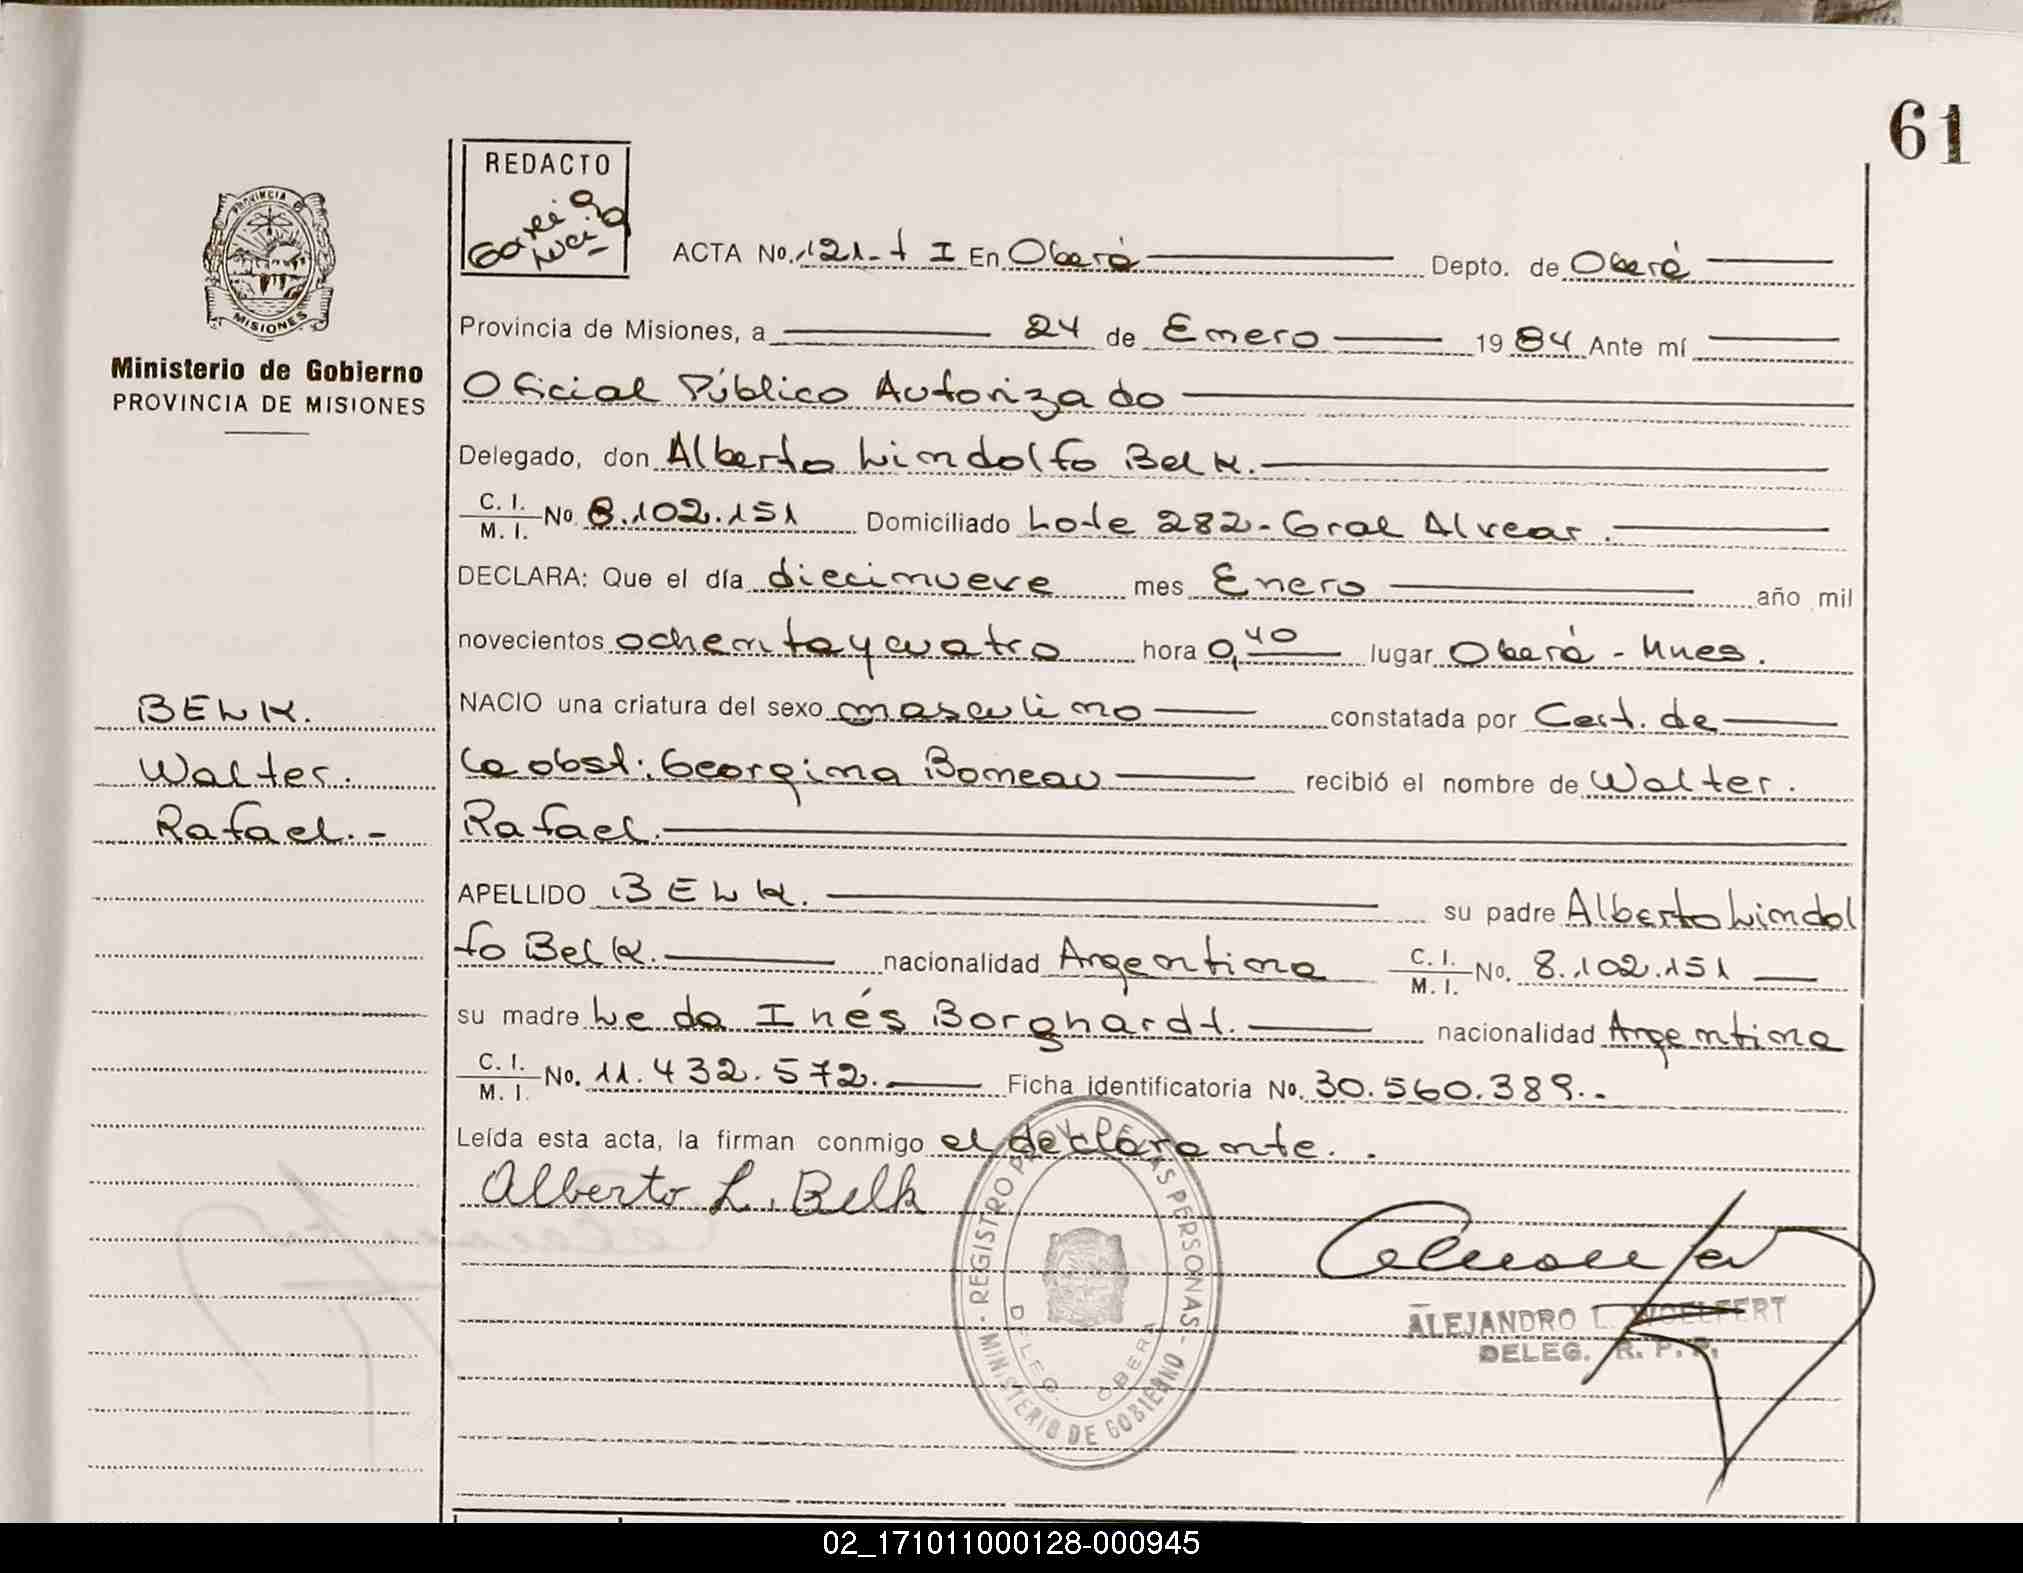 61
REDACTO
García
Lucía
ACTA No. 121-t I En Oberá Depto. de Oberá
PROVINCIA
MISIONES
Ministerio de Gobierno
PROVINCIA DE MISIONES
Provincia de Misiones, a 24 de Enero 1984 Ante mí
Oficial Público Autorizado
Delegado, don Alberto Lindolfo Belk.
C. I. M. I. No 8.102.151 Domiciliado Lote 282-Gral Alvear.
DECLARA: Que el día diecinueve mes Enero año mil
novecientos ochenta y cuatro hora 0,40 lugar Oberá - Mnes.
BELK. NACIO una criatura del sexo masculino constatada por Cert. de
Walter. la obst. Georgina Boneau recibió el nombre de Walter.
Rafael.- Rafael.
APELLIDO BELK. su padre Alberto Lindol
fo Belk. nacionalidad Argentina C. I. M. I. No. 8.102.151
su madre Leda Inés Borghardt. nacionalidad Argentina
C. I. M. I. No. 11.432.572. Ficha identificatoria No. 30.560.389.-
Leída esta acta, la firman conmigo el declarante. .
Alberto L. Belk
REGISTRO PROV. DE LAS PERSONAS - MINISTERIO DE GOBIERNO
DELEG. OBERA
ALEJANDRO L. WOELFERT
DELEG. R. P. P.
02_171011000128-000945